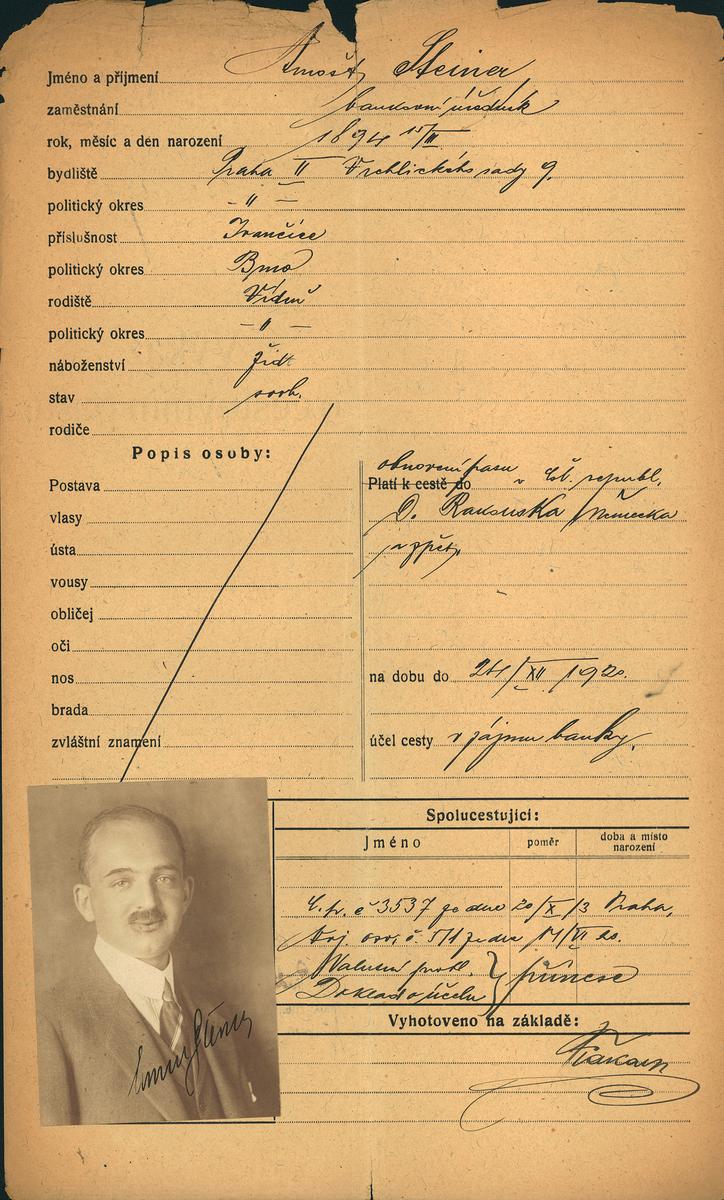 Jméno a příjmení Arnošt Steiner
zaměstnání bankovní úředník
rok, měsíc a den narození 1894 15/III
bydliště Praha II Vrchlického sady 9.
politický okres - " -
příslušnost Ivančice
politický okres Brno
rodiště Vídeň
politický okres - " -
náboženství žid.
stav svob.
rodiče
Popis osoby:
Postava
vlasy
ústa
vousy
obličej
oči
nos
brada
zvláštní znamení
obnovení pasu v čsl. republ.
Platí k cestě do
D. Rakouska / Německa
a zpět
na dobu do 24/XII 1920.
účel cesty v zájmu banky.
Spolucestující:
Jméno poměr doba a místo narození
C. p. č 3537 ze dne 20/X/3 Praha,
ze dne 17/VI 20.
Valutní protl.
Doklad o účelu } přinese
Vyhotoveno na základě:
Steiner